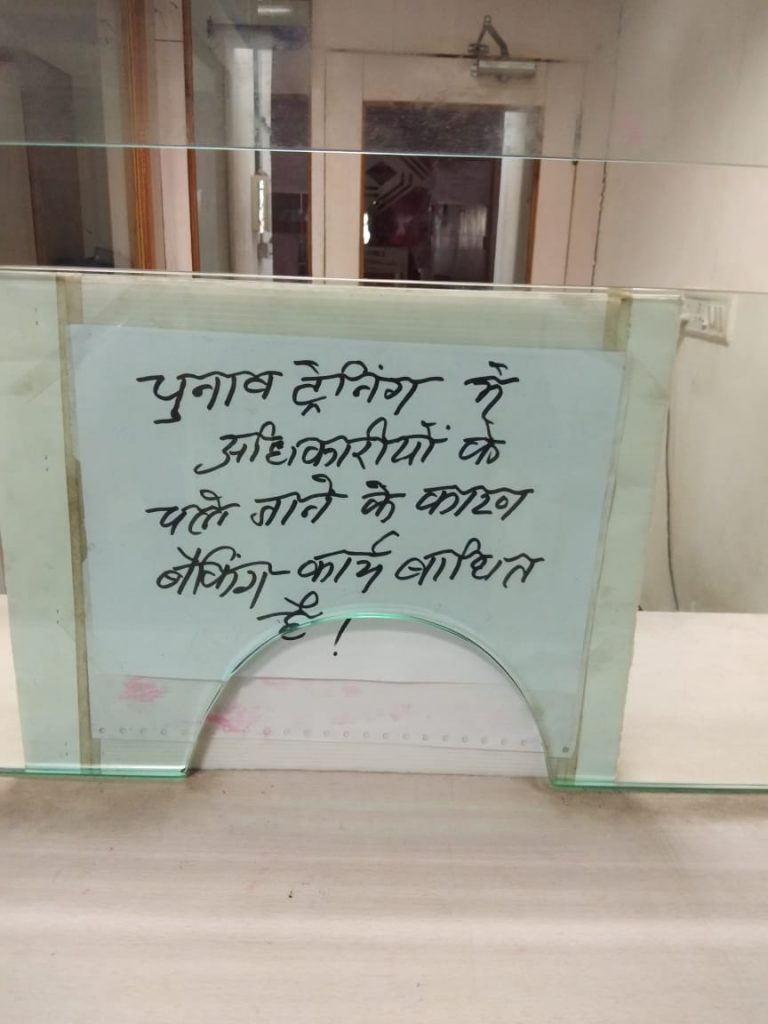 चुनाव ट्रेनिंग में
अधिकारीयों के
चले जाने के कारण
बैकिंग कार्य बाधित
है !